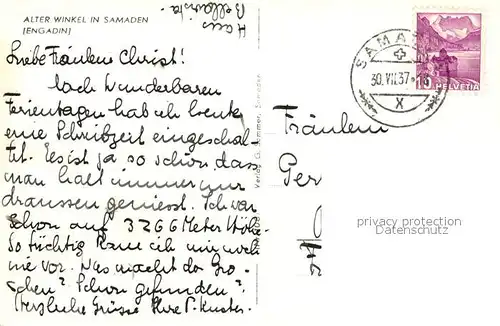 ALTER WINKEL IN SAMADEN
(ENGADIN)
Haus
Bellavista.
Liebe Fräulein Christ!
Nach Wunderbaren
Ferientagen hab ich heute
eine Schribzeit eingeschal-
tet. Es ist ja so schön, dass
man halt immer nur
draussen geniesst. Ich war
schon auf 3266 Meter Höhe
So tüchtig kam ich mir noch
nie vor. Was macht do Gro-
schen? Schon gefunden?
Herzliche Grüsse Ihre P. Kuster.
SAMA
30.VII.37.
X
HELVETIA
Fräulein
Per
privacy protection
Datenschutz